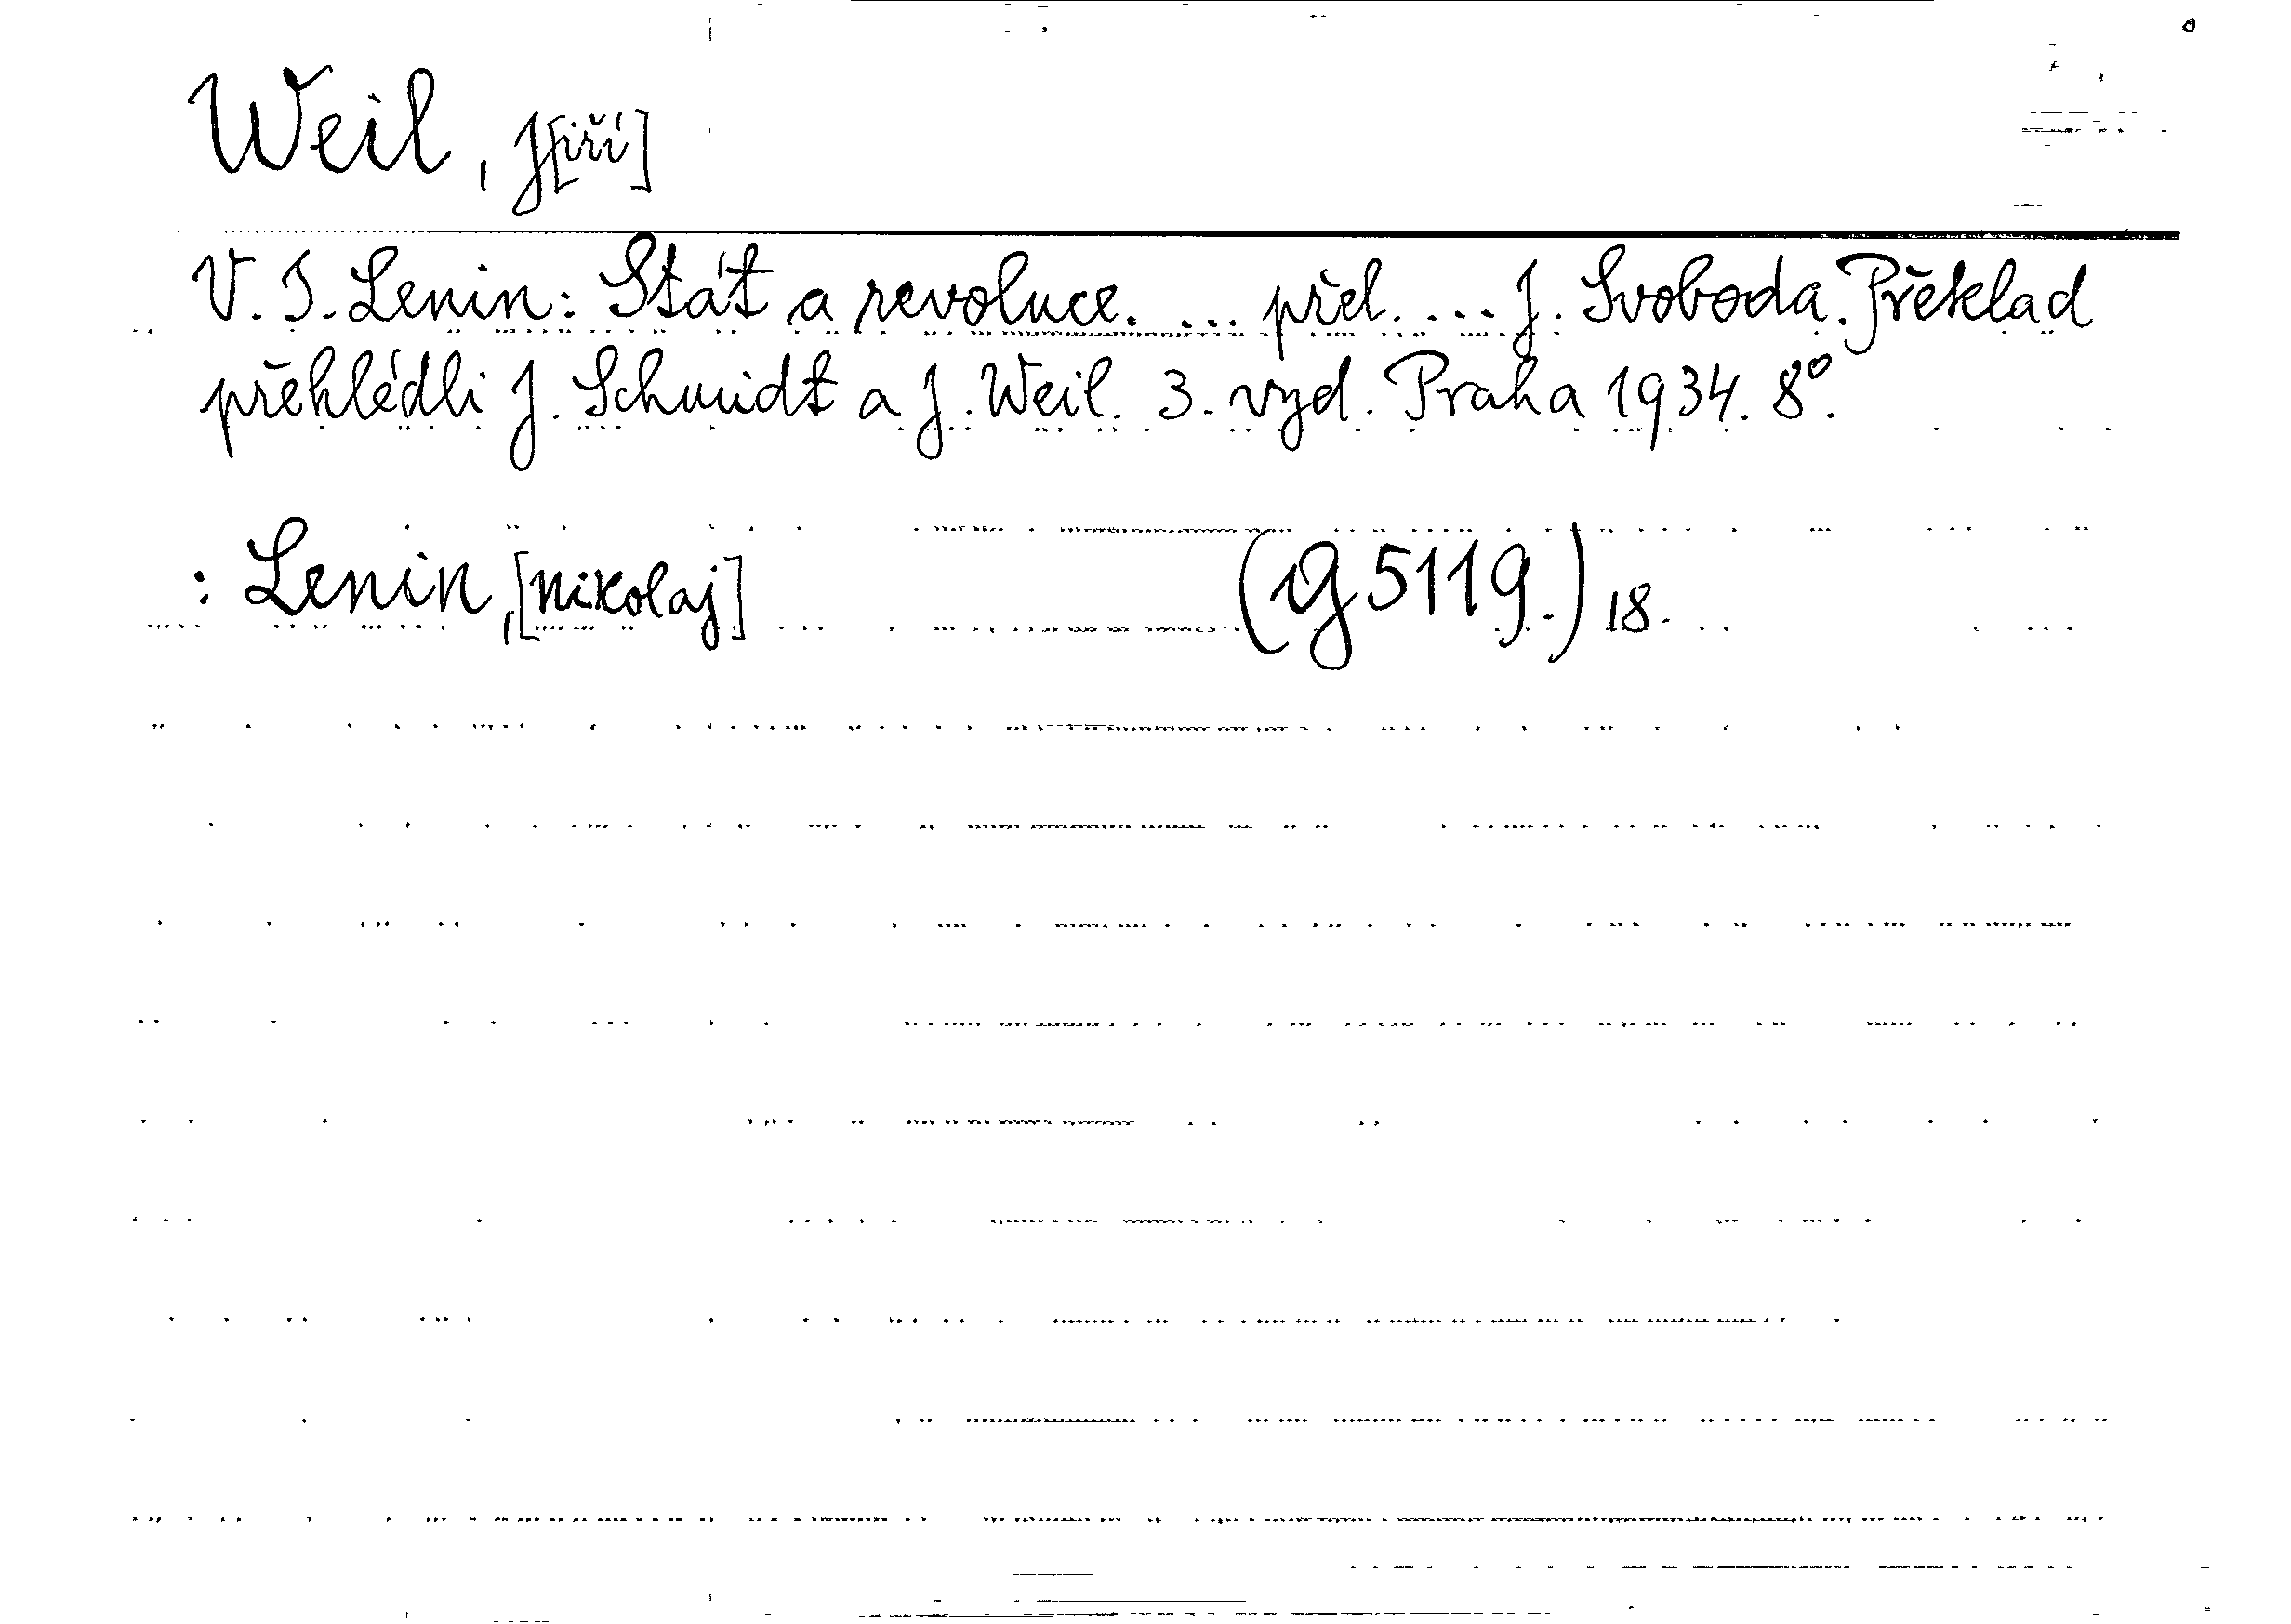 Weil, J[iří]
V. I. Lenin: Stát a revoluce. ... přel. ... J. Svoboda. Překlad
přehlédli J. Schmidt a J. Weil. 3. vyd. Praha 1934. 8°.
: Lenin, [Nikolaj] (g 5119.) 18.